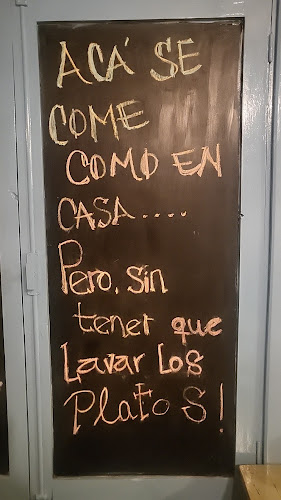 ACÁ SE
COME
COMO EN
CASA....
Pero, sin
tener que
Lavar Los
PLatoS!